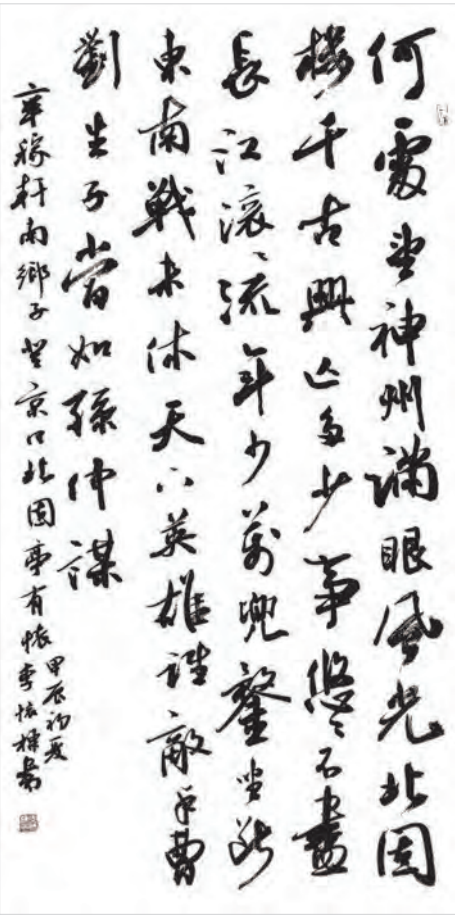 何處望神州滿眼風光北固
樓千古興亡多少事悠〻不盡
長江滾〻流年少萬兜鍪坐斷
東南戰未休天下英雄誰敵手曹
劉生子當如孫仲謀
辛稼軒南鄉子登京口北固亭有懷
甲辰初夏
李懷書